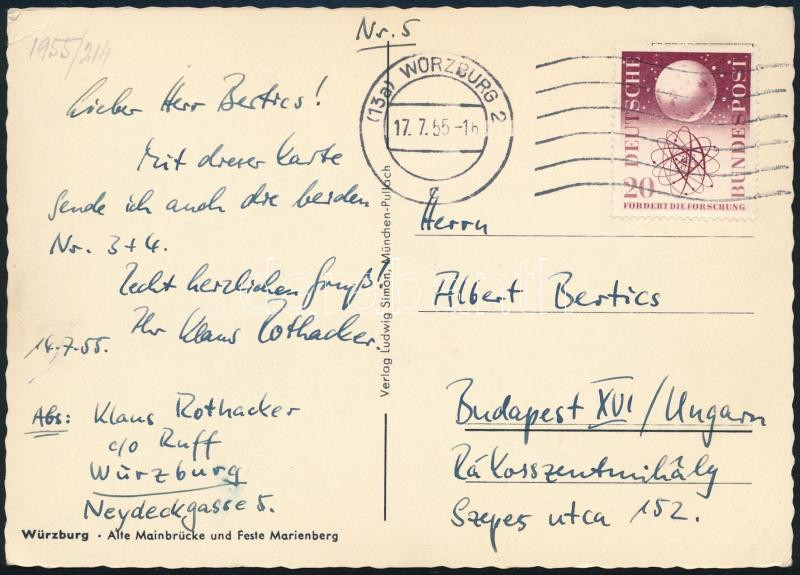 1955/214
Nr. 5
Lieber Herr Bertics!
Mit dieser Karte
sende ich auch die beiden
Nr. 3+4.
Recht herzlichen Gruß!
Ihr Klaus Rothacker.
14.7.55.
Abs: Klaus Rothacker
c/o Ruff
Würzburg
Neydeckgasse 5.
Würzburg · Alte Mainbrücke und Feste Marienberg
Verlag Ludwig Simon, München-Pullach
(13a) WÜRZBURG 2
17.7.55-18
DEUTSCHE
BUNDESPOST
20
FÖRDERT DIE FORSCHUNG
Herrn
Albert Bertics
Budapest XVI/Ungarn
Rákosszentmihály
Szepes utca 152.
darabanth